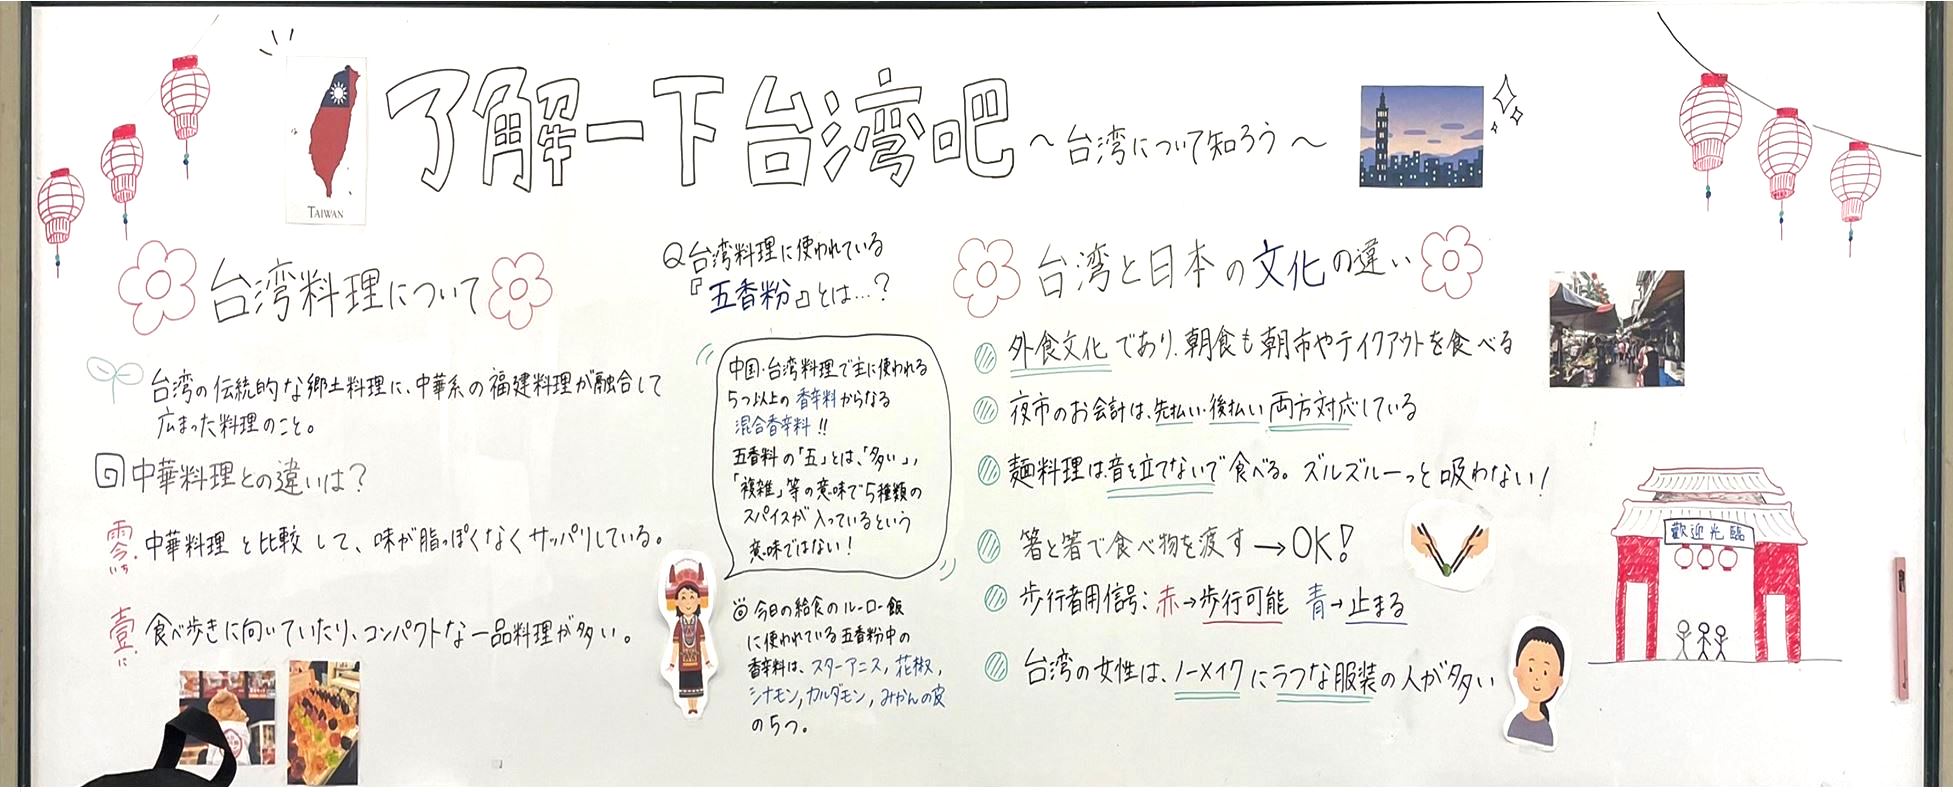 了解一下台湾吧 ～台湾について知ろう～
TAIWAN
台湾料理について
台湾の伝統的な郷土料理に、中華系の福建料理が融合して
広まった料理のこと。
中華料理との違いは？
零 中華料理と比較して、味が脂っぽくなくサッパリしている。
いち
壹 食べ歩きに向いていたり、コンパクトな一品料理が多い。
に
Q台湾料理に使われている
『五香粉』とは…？
中国・台湾料理で主に使われる
5つ以上の香辛料からなる
混合香辛料!!
五香料の「五」とは、「多い」,
「複雑」等の意味で5種類の
スパイスが入っているという
意味ではない！
今日の給食のルーロー飯
に使われている五香粉中の
香辛料は、スターアニス, 花椒,
シナモン, カルダモン, みかんの皮
の5つ。
台湾と日本の文化の違い
外食文化であり、朝食も朝市やテイクアウトを食べる
夜市のお会計は、先払い・後払い両方対応している
麺料理は音を立てないで食べる。ズルズルーっと吸わない！
箸と箸で食べ物を渡す→OK！
歩行者用信号：赤→歩行可能 青→止まる
台湾の女性は、ノーメイクにラフな服装の人が多い
歡迎光臨